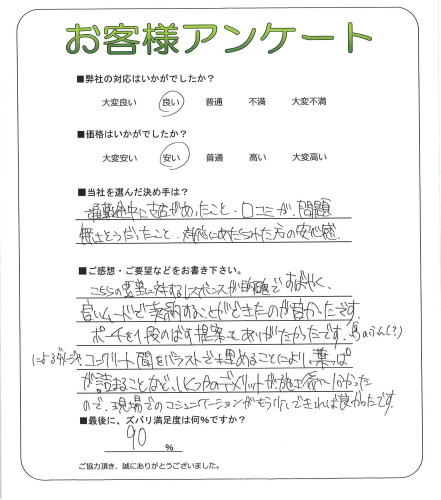 お客様アンケート
■弊社の対応はいかがでしたか?
大変良い 良い 普通 不満 大変不満
■価格はいかがでしたか?
大変安い 安い 普通 高い 大変高い
■当社を選んだ決め手は?
通勤途中に支店があったこと、口コミが、問題
無さそうだったこと、対応にあたられた方の安心感
■ご感想・ご要望などをお書き下さい。
こちらの要望に対するレスポンスが的確ですばやく、
良いムードで契約することができたのが良かったです
ポーチを1段のばす提案もありがたかったです。鳥のふん(?)
によるダメージ、コンクリート間をバラストで埋めることにより、葉っぱ
が詰まることなど、いくつかのデメリットが施工後に分かった
ので、現場でのコミュニケーションがもう少しできれば良かったです。
■最後に、ズバリ満足度は何%ですか?
90
%
ご協力頂き、誠にありがとうございました。